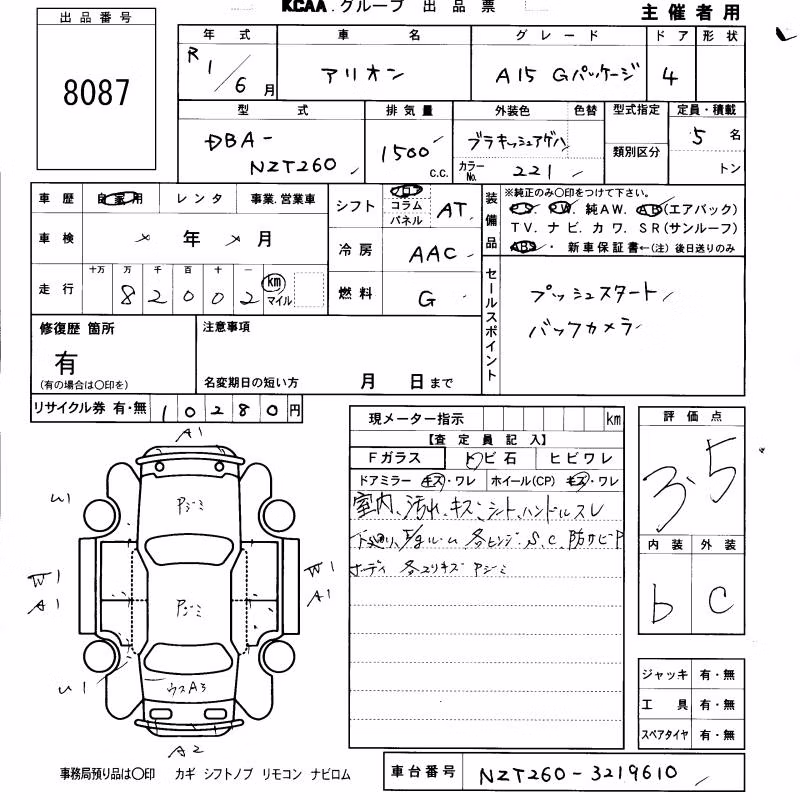 KCAA.グループ 出品票
主催者用
出品番号
8087
年式 車名 グレード ドア 形状
R1/6月 アリオン A15 Gパッケージ 4
型式 排気量 外装色 色替 型式指定 定員・積載
DBA-
NZT260 1500 c.c. ブラキッシュアゲハ カラーNo. 221 類別区分 5名
トン
車歴 自家用 レンタ 事業.営業車
車検 × 年 × 月
走行 十万 万 千 百 十 一
8 2 0 0 2 km マイル
シフト フロア コラム パネル AT
冷房 AAC
燃料 G
装備品
※純正のみ〇印をつけて下さい。
PS. PW. 純AW. AB(エアバック)
TV. ナビ. カワ. SR(サンルーフ)
ABS・新車保証書←(注)後日送りのみ
セールスポイント
プッシュスタート
バックカメラ
修復歴 箇所
有
(有の場合は〇印を)
注意事項
名変期日の短い方 月 日まで
リサイクル券 有・無 10280円
現メーター指示 km
【査定員記入】
Fガラス トビ石 ヒビワレ
ドアミラー キズ・ワレ ホイール(CP) キズ・ワレ
室内、汚れ、キズ、シート、ハンドルスレ
下廻り、ルーム 各ヒンジ S.C. 防サビP
ボディ 各スリキズ Pジミ
評価点
3.5
内装 外装
b C
ジャッキ 有・無
工具 有・無
スペアタイヤ 有・無
A1
U1
Pジミ
W1
A1
W1
A1
Pジミ
U1
ウスA3
A2
事務局預り品は〇印 カギ シフトノブ リモコン ナビロム
車台番号 NZT260-3219610